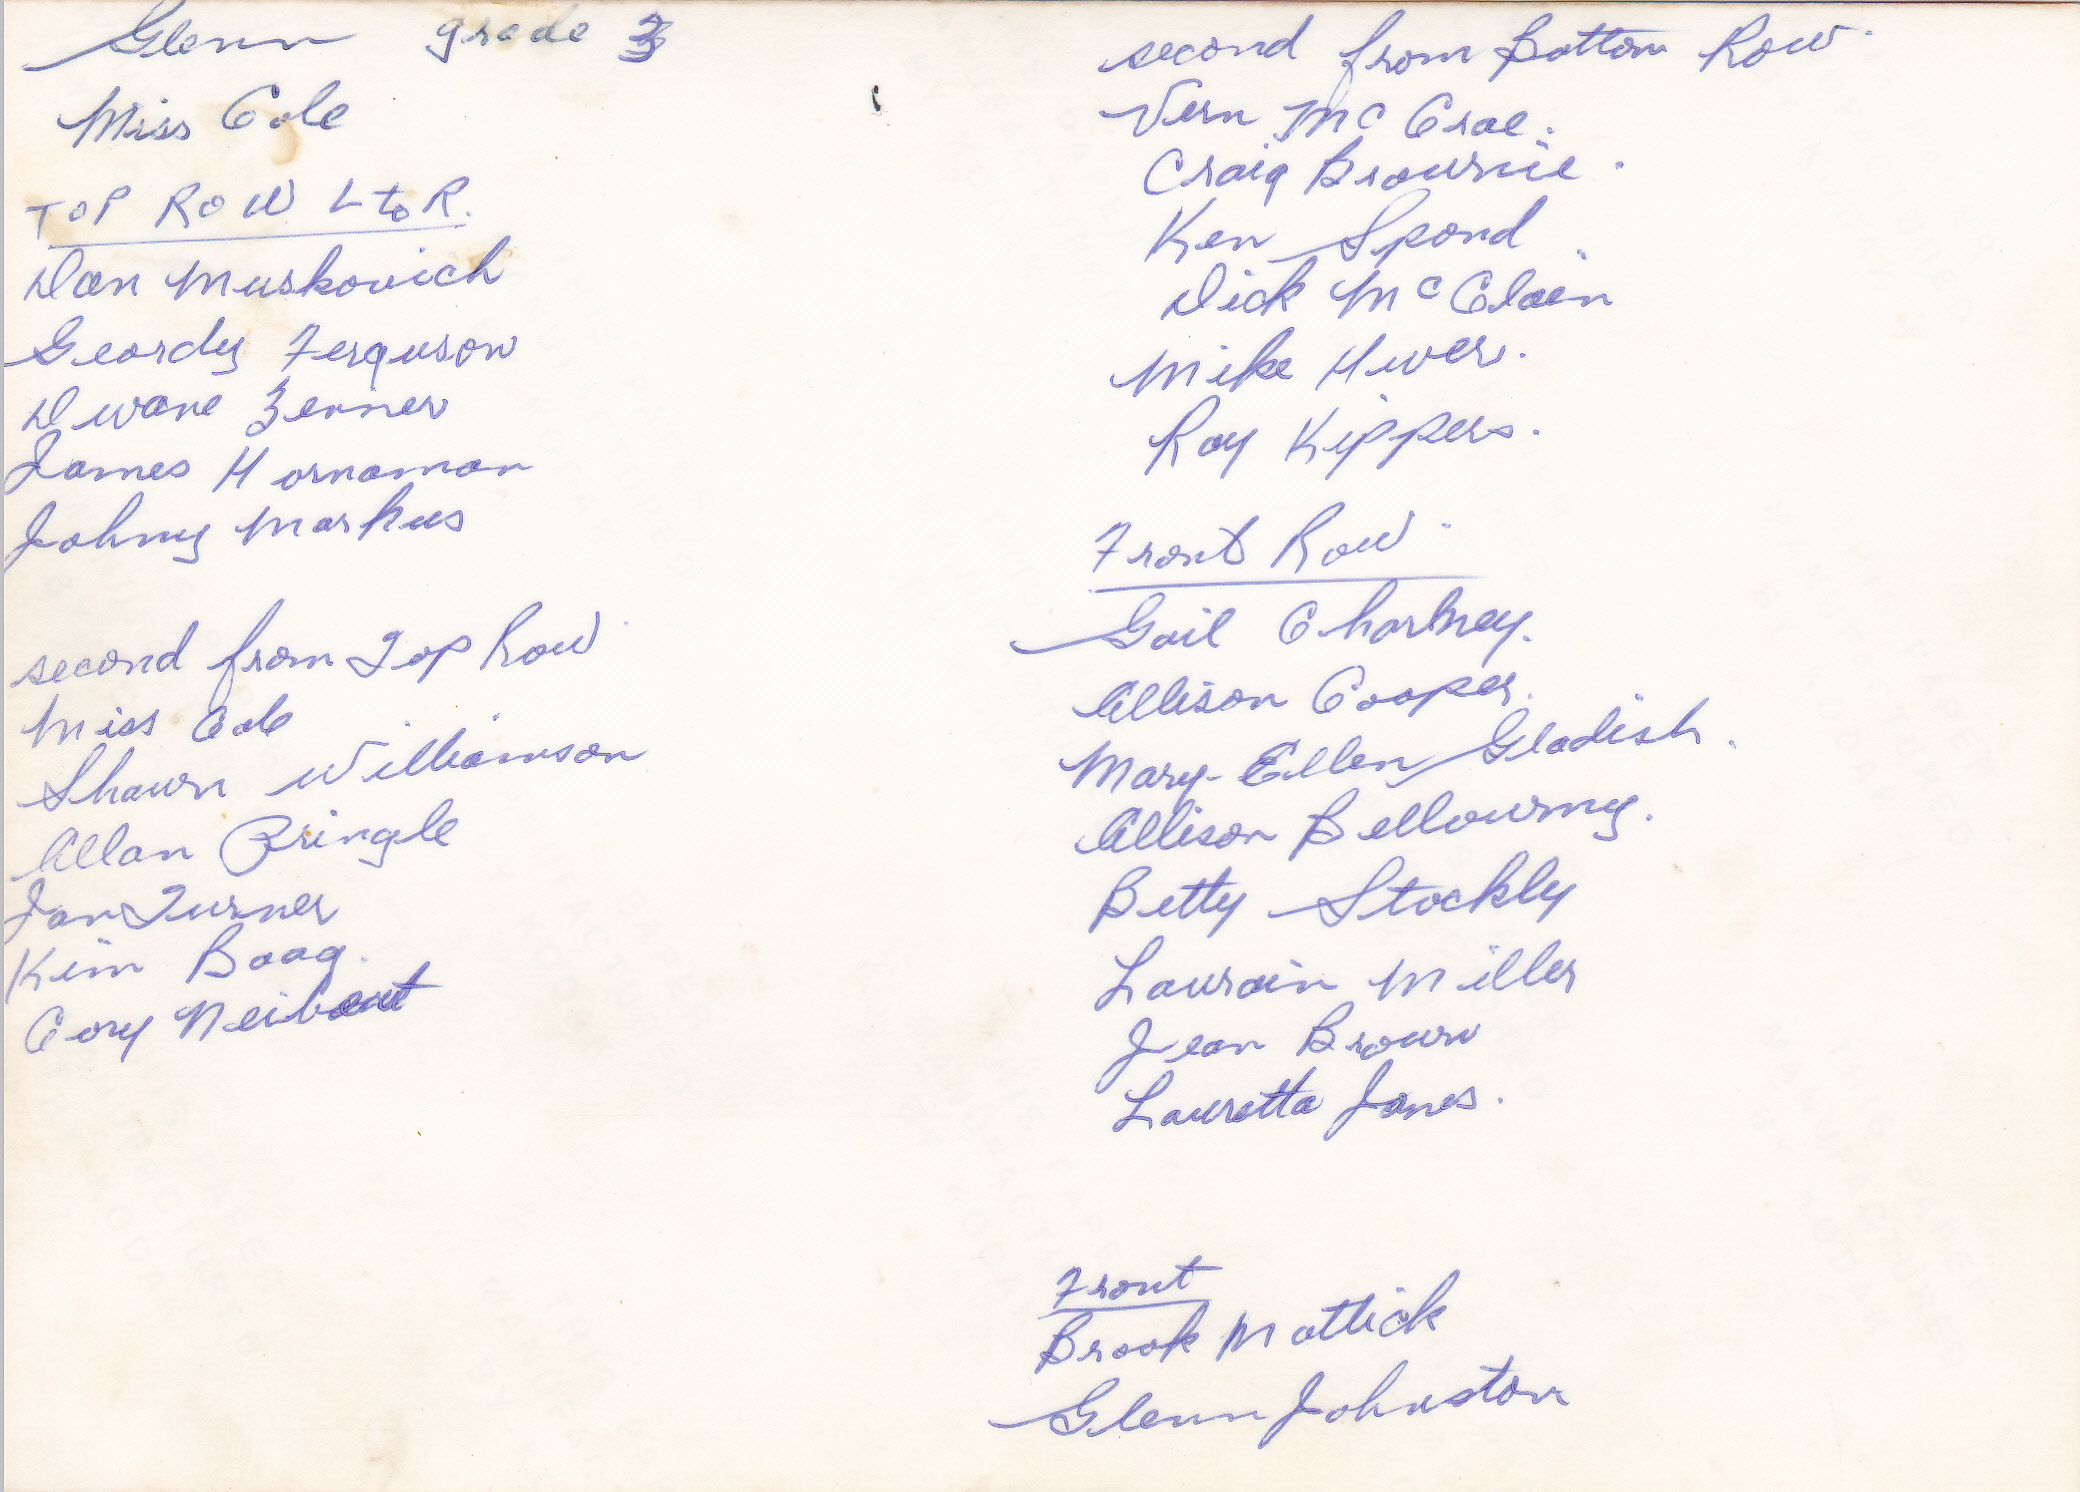 Glenn grade 3
Miss Cole
TOP ROW L to R.
Dan Muskovich
Geordy Ferguson
Dwane Zenner
James Hornaman
Johny Markus
second from Top Row
Miss Cole
Shawn Williamson
Allan Pringle
Jan Turner
Kim Boag.
Cory
second from Bottom Row.
Vern McCrae.
Craig Brownie.
Ken Spond
Dick McClain
Mike Hwer.
Ray Kippers.
Front Row
Gail Chartney.
Allison Cooper.
Mary-Ellen Gladish.
Allison Bellowmy.
Betty Stockly
Laurain Miller
Jean Brown
Lauretta Jones.
Front
Brook Mattick
Glenn Johnston